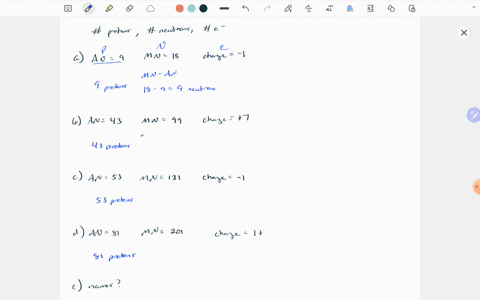 # protons, # neutrons, # e⁻
P N e
a) AN = 9 MN = 18 charge = -1
9 protons MN - AN
18 - 9 = 9 neutrons
b) AN = 43 MN = 99 charge = +7
43 protons
c) AN = 53 MN = 131 charge = -1
53 protons
d) AN = 81 MN = 201 charge = 1+
81 protons
e) names?